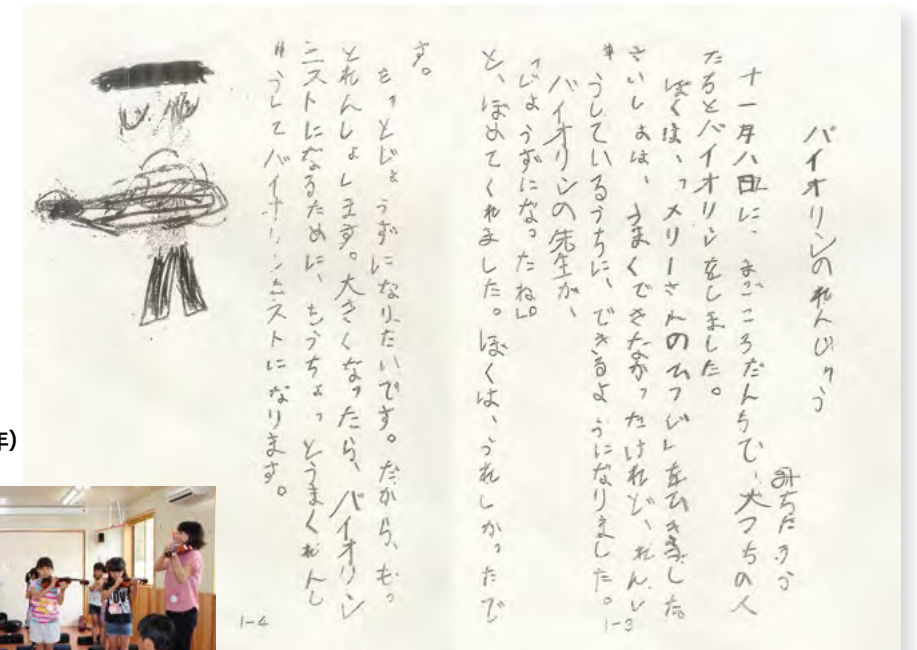 バイオリンのれんじゅう
十一月八日に、まごころだんちで、大つちの人
たちとバイオリンをしました。
ぼくは、「メリーさんのひつじ」をひきました。
さいしょは、うまくできなかったけれど、れんし
ゅうしているうちに、できるようになりました。
バイオリンの先生が、
「じょうずになったね。」
と、ほめてくれました。ぼくは、うれしかったで
す。
もっとじょうずになりたいです。だから、もっ
とれんしょします。大きくなったら、バイオリン
ニストになるために、もうちょっとうまくれんし
ゅうしてバイオリンニストになります。
1-3
1-4
年)